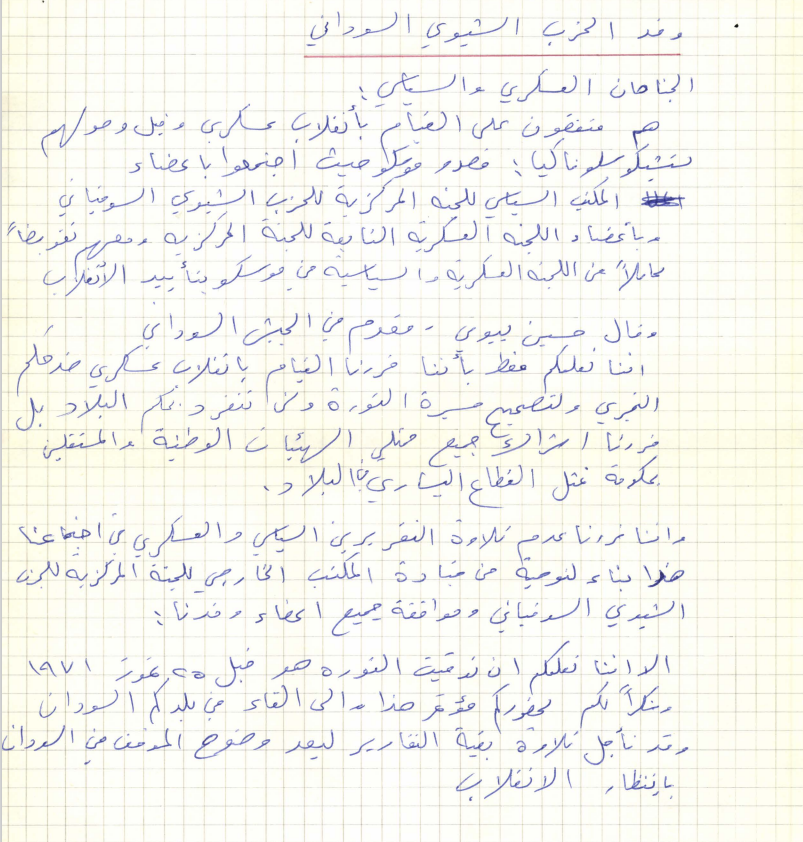 وفد الحزب الشيوعي السوداني
الجناحان العسكري والسياسي:
هم متفقون على القيام بأنقلاب عسكري وقبل وصولهم
لتشيكوسلوفاكيا: قصدو موسكو حيث أجتمعوا باعضاء
المكتب السياسي للجنه المركزية للحزب الشيوعي السوفياتي
وبأعضاء اللجنه العسكرية التابعة للجنة المركزيه ومعهم تفويضاً
كاملاً من اللجنه العسكرية والسياسية في موسكو بتأييد الأنقلاب
وقال حسين بيومي - مقدم في الجيش السوداني
اننا نعلمكم فقط بأننا قررنا القيام بانقلاب عسكري ضد حكم
النميري ولتصحيح مسيرة الثورة ولن تنفرد بحكم البلاد بل
قررنا اشتراك جميع ممثلي الهيئات الوطنية والمستقلين
بحكومة تمثل القطاع اليساري في البلاد.
واننا قررنا عدم تلاوة التقريرين السياسي والعسكري في اجتماعنا
هذا بناء لتوصية من قيادة المكتب الخارجي للجنة المركزية للحزب
الشيوعي السوفياتي وموافقة جميع اعضاء وفدنا:
الا اننا نعلمكم ان توقيت الثوره هو قبل ٢٥ تموز ١٩٧١
وشكراً لكم لحضوركم مؤتمر هذا والى القاء في بلدكم السودان
وقد تأجل تلاوة بقية التقارير ليعد وضوح الموقف في السودان
بإنتظار الانقلاب